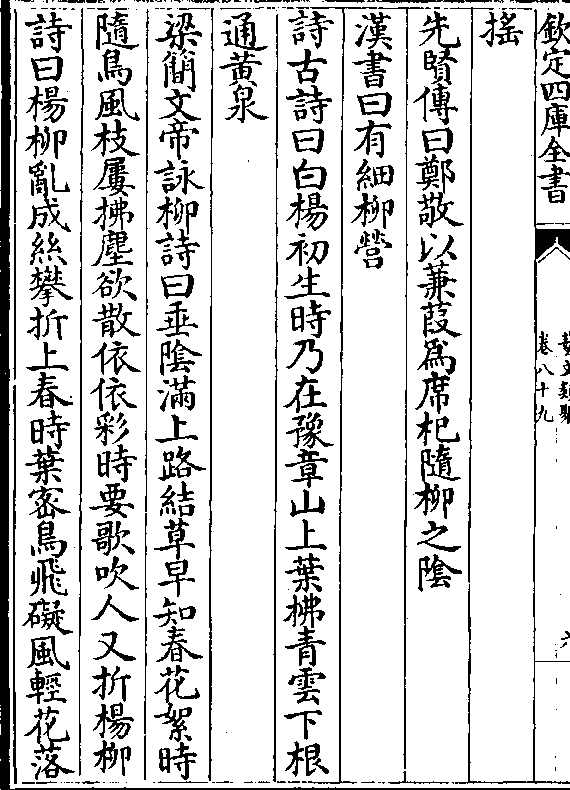 欽定四庫全書
卷八十九
搖
先賢傳曰鄭敬以蒹葭為席杞隨柳之陰
漢書曰有細柳營
詩古詩曰白楊初生時乃在豫章山上葉拂青雲下根
通黃泉
梁簡文帝詠柳詩曰垂陰滿上路結草早知春花絮時
隨鳥風枝屢拂塵欲散依依彩時要歌吹人又折楊柳
詩曰楊柳亂成絲攀折上春時葉密鳥飛礙風輕花落